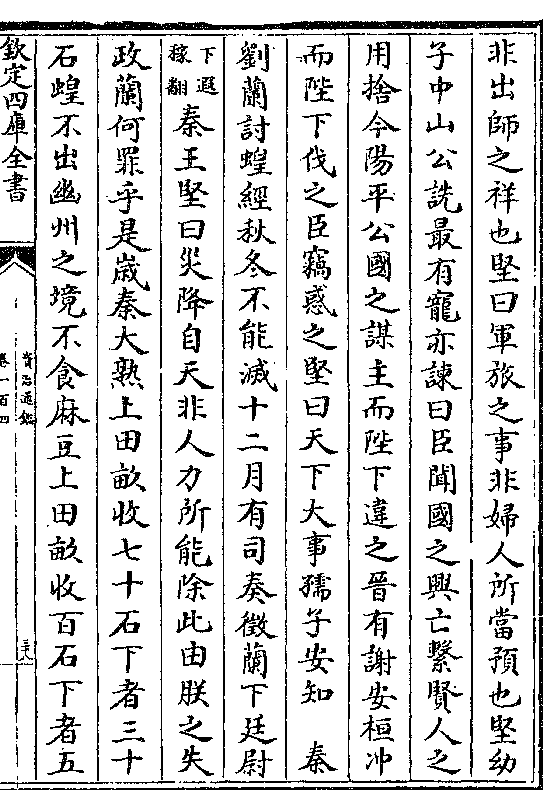 非出師之祥也堅曰軍旅之事非婦人所當預也堅幼
子中山公詵最有寵亦諫曰臣聞國之興亡繫賢人之
用捨今陽平公國之謀主而陛下違之晉有謝安桓冲
而陛下伐之臣竊惑之堅曰天下大事孺子安知 秦
劉蘭討蝗經秋冬不能滅十二月有司奏徵蘭下廷尉
下遐
稼翻
秦王堅曰災降自天非人力所能除此由朕之失
政蘭何罪乎是歲秦大熟上田畝收七十石下者三十
石蝗不出幽州之境不食麻豆上田畝收百石下者五
欽定四庫全書
資治通鑑
卷一百四